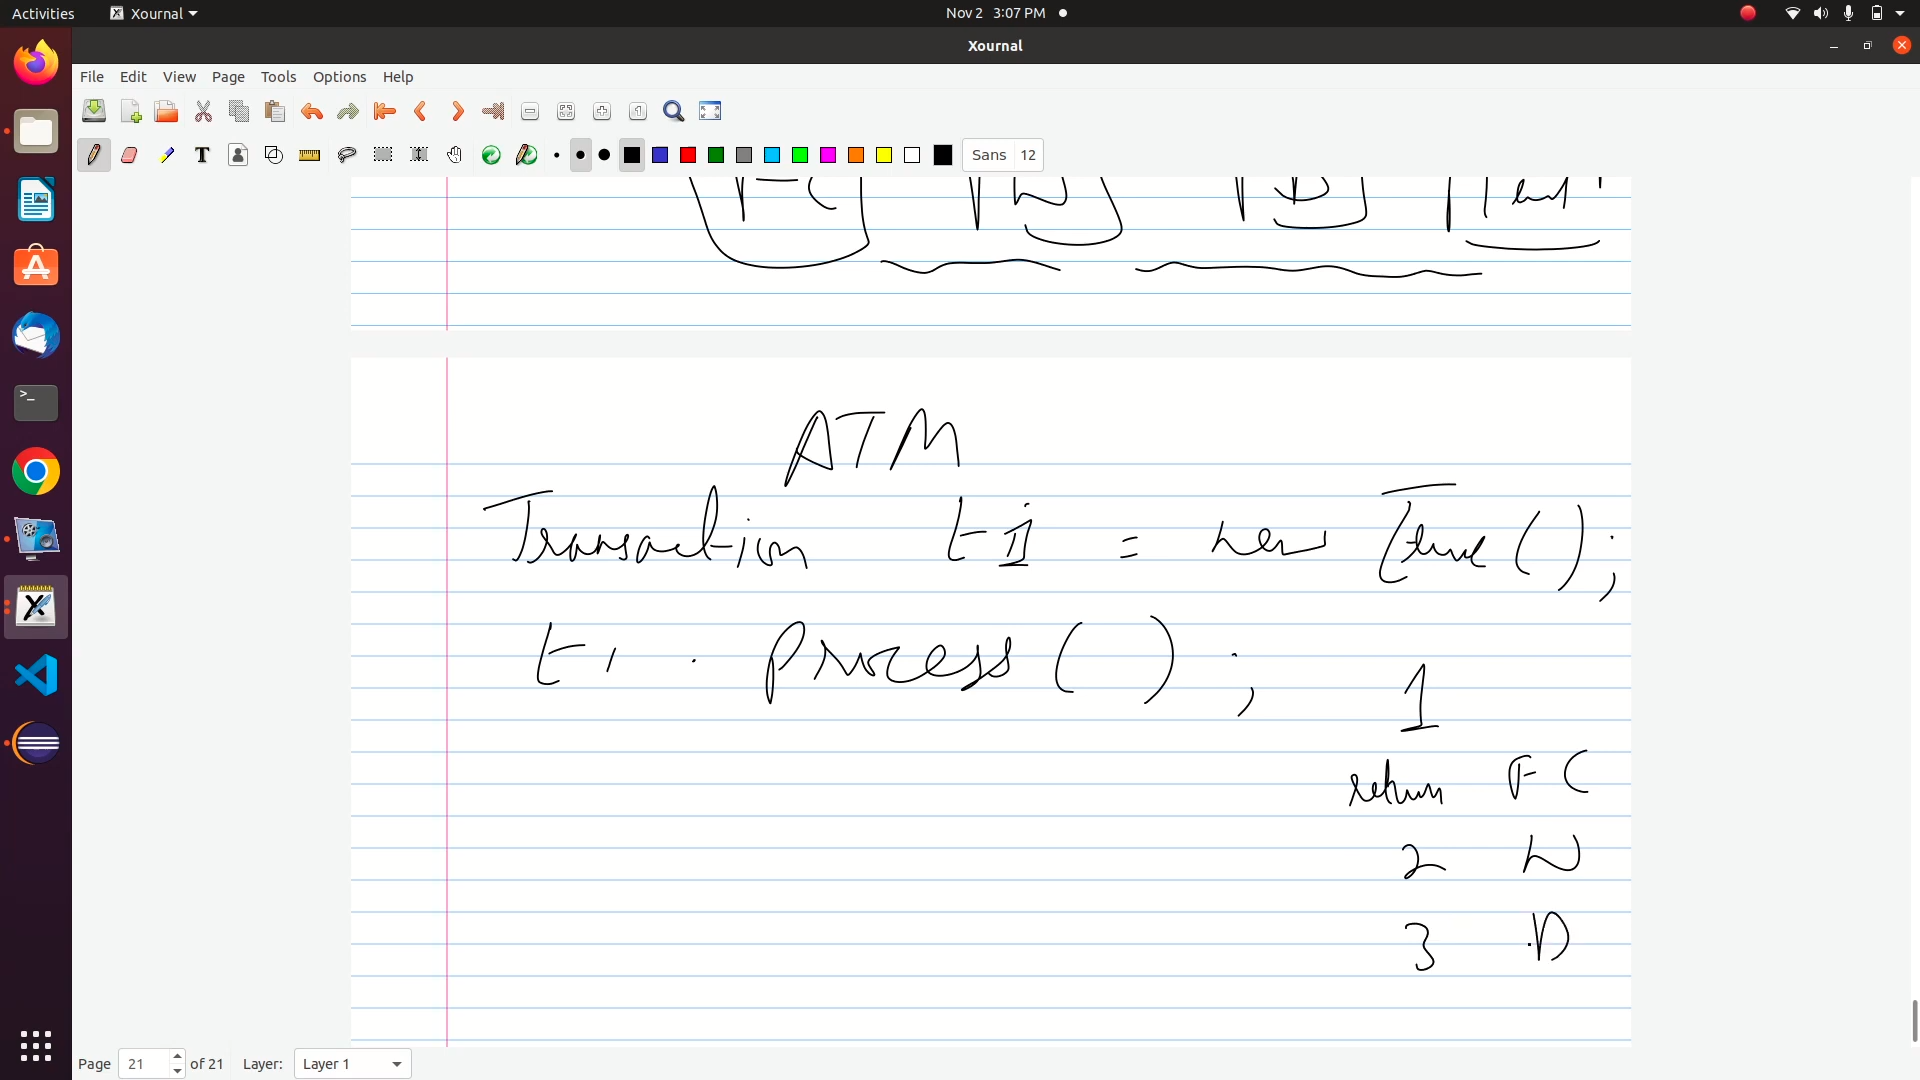 Activities Xournal Nov 2 3:07 PM
Xournal
File Edit View Page Tools Options Help
Sans 12
ATM
Transaction t1 = new ();
t1 . process ( ) ;
1
return FC
2 W
3 D
Page 21 of 21 Layer: Layer 1